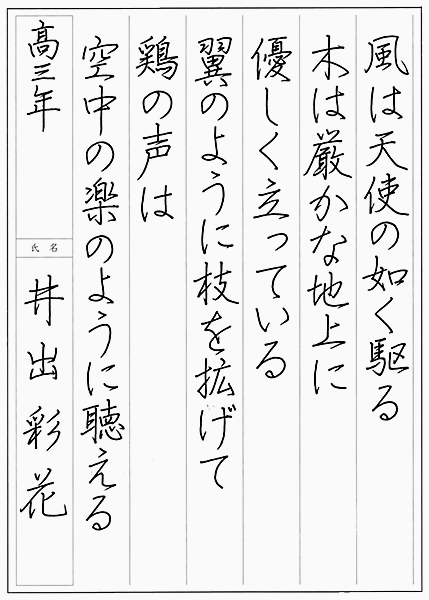 風は天使の如く駆る
木は厳かな地上に
優しく立っている
翼のように枝を拡げて
鶏の声は
空中の楽のように聴える
高三年
氏名
井出彩花